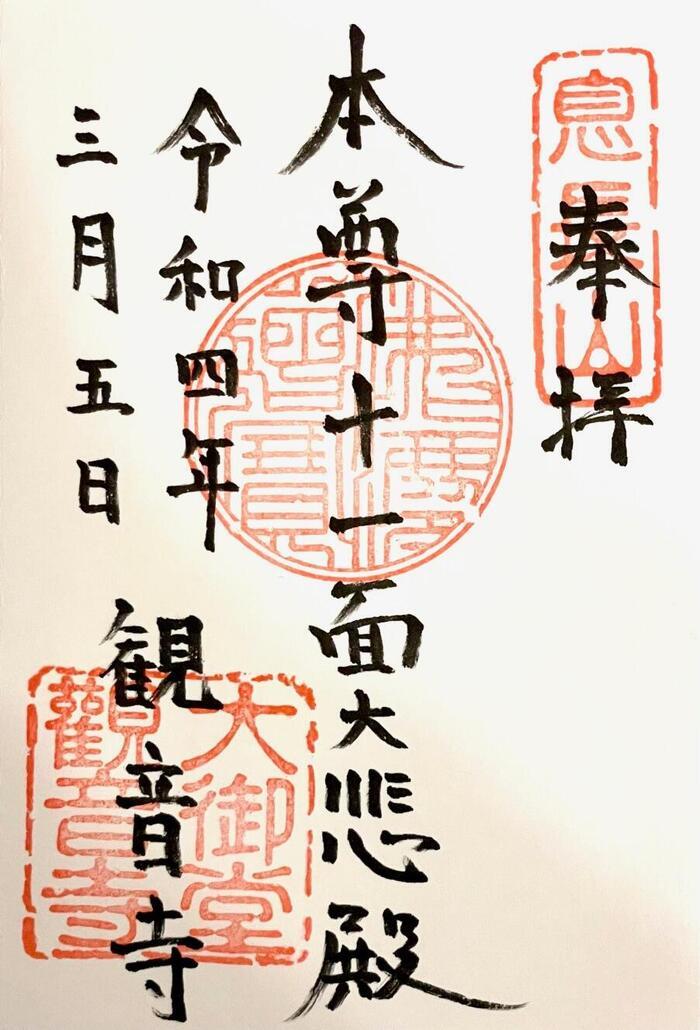 奉拝
息長山
本尊十一面大悲殿
令和四年
三月五日
観音寺
大御堂
觀音寺